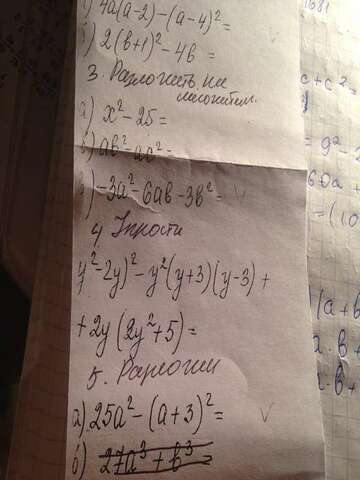 4a(a-2)-(a-4)²=
2(b+1)²-4b=
3. Разложить на
множители.
а) x²-25=
ab²-ac²=
-3a²-6ab-3b²=
4 Упрости
y²-2y)²-y²(y+3)(y-3)+
+2y(2y²+5)=
5. Разложи
а) 25a²-(a+3)²=
б) 27a³+b³=